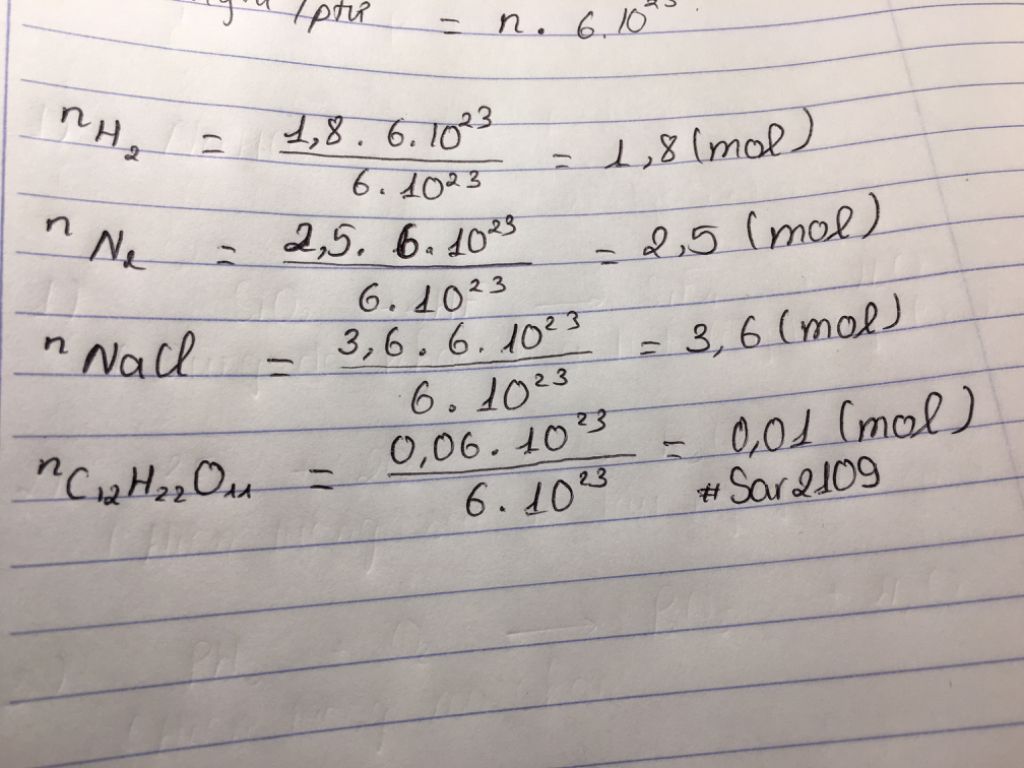 /ptử = n. 6.10²³
nH₂ = 1,8. 6.10²³ / 6. 10²³ = 1,8 (mol)
nN₂ = 2,5. 6.10²³ / 6. 10²³ = 2,5 (mol)
nNaCl = 3,6. 6. 10²³ / 6. 10²³ = 3,6 (mol)
nC₁₂H₂₂O₁₁ = 0,06. 10²³ / 6. 10²³ = 0,01 (mol)
#Sar2109